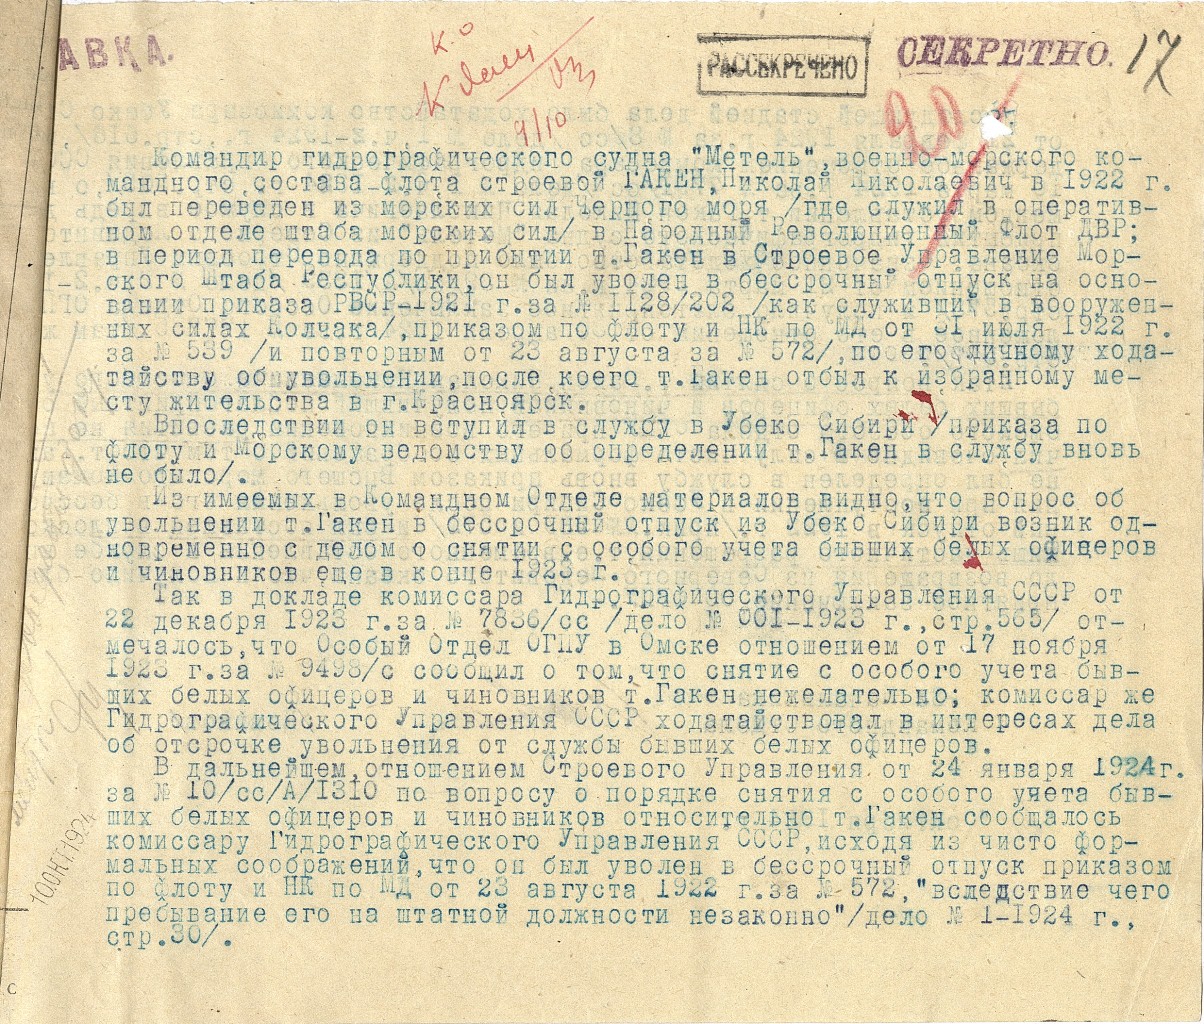 АВКА.
РАССЕКРЕЧЕНО
СЕКРЕТНО.
17
к.о
К делу
9/10
20
Командир гидрографического судна "Метель", военно-морского ко-
мандного состава флота строевой ГАКЕН, Николай Николаевич в 1922 г.
был переведен из морских сил Черного моря /где служил в оператив-
ном отделе штаба морских сил/ в Народный Революционный Флот ДВР;
в период перевода по прибытии т.Гакен в Строевое Управление Мор-
ского Штаба Республики, он был уволен в бессрочный отпуск на осно-
вании приказа РВСР-1921 г.за № 1128/202 /как служивший в вооружен-
ных силах Колчака/, приказом по флоту и НК по МД от 31 июля 1922 г.
за № 539 /и повторным от 23 августа за № 572/, по его личному хода-
тайству об увольнении, после коего т.Гакен отбыл к избранному ме-
сту жительства в г.Красноярск.
Впоследствии он вступил в службу в Убеко Сибири /приказа по
флоту и Морскому ведомству об определении т.Гакен в службу вновь
не было/.
Из имеемых в Командном Отделе материалов видно, что вопрос об
увольнении т.Гакен в бессрочный отпуск из Убеко Сибири возник од-
новременно с делом о снятии с особого учета бывших белых офицеров
и чиновников еще в конце 1923 г.
Так в докладе комиссара Гидрографического Управления СССР от
22 декабря 1923 г.за № 7836/сс /дело № 001-1923 г., стр.565/ от-
мечалось, что Особый Отдел ОГПУ в Омске отношением от 17 ноября
1923 г.за № 9498/с сообщил о том, что снятие с особого учета быв-
ших белых офицеров и чиновников т.Гакен нежелательно; комиссар же
Гидрографического Управления СССР ходатайствовал в интересах дела
об отсрочке увольнения от службы бывших белых офицеров.
В дальнейшем, отношением Строевого Управления от 24 января 1924г.
за № 10/сс/А/1310 по вопросу о порядке снятия с особого учета быв-
ших белых офицеров и чиновников относительно т.Гакен сообщалось
комиссару Гидрографического Управления СССР, исходя из чисто фор-
мальных соображений, что он был уволен в бессрочный отпуск приказом
по флоту и НК по МД от 23 августа 1922 г.за № 572, "вследствие чего
пребывание его на штатной должности незаконно"/дело № 1-1924 г.,
стр.30/.
10.ОКТ.1924
с